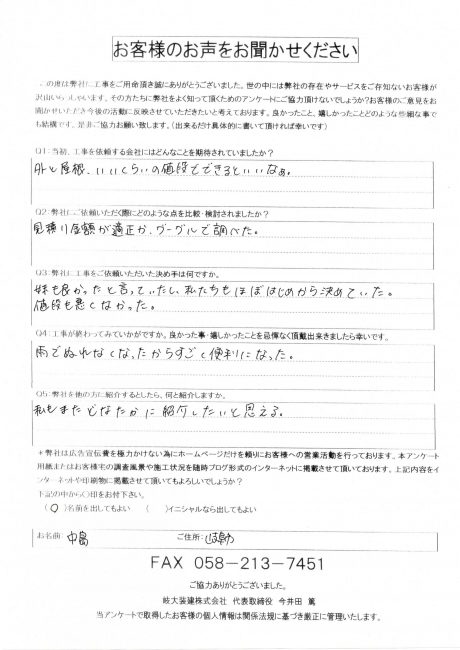 お客様のお声をお聞かせください
この度は弊社に工事をご用命頂き誠にありがとうございました。世の中には弊社の存在やサービスをご存知ないお客様が
沢山いらっしゃいます。その方たちに弊社をよく知って頂くためのアンケートにご協力頂けないでしょうか?お客様のご意見をお
聞かせいただき今後の活動に反映させていただきたいと考えております。良かったこと、嬉しかったことどのような些細な事で
も結構です。是非ご協力お願い致します。（出来るだけ具体的に書いて頂ければ幸いです）
Q1:当初、工事を依頼する会社にはどんなことを期待されていましたか?
外と屋根、いいくらいの値段でできるといいなぁ。
Q2:弊社にご依頼いただく際にどのような点を比較・検討されましたか?
見積り金額が適正か、グーグルで調べた。
Q3:弊社に工事をご依頼いただいた決め手は何ですか。
妹も良かったと言っていたし、私たちもほぼはじめから決めていた。
値段も悪くなかった。
Q4:工事が終わってみていかがですか。良かった事・嬉しかったことを忌憚なく頂戴出来きましたら幸いです。
雨でぬれなくなったからすごく便利になった。
Q5:弊社を他の方に紹介するとしたら、何と紹介しますか。
私もまたどなたかに紹介したいと思える。
＊弊社は広告宣伝費を極力かけない為にホームページだけを頼りにお客様への営業活動を行っております。本アンケート
用紙またはお客様宅の調査風景や施工状況を随時ブログ形式のインターネットに掲載させて頂いております。上記内容をイ
ンターネットや印刷物に掲載させて頂いてもよろしいでしょうか?
下記の中から○印をお付下さい。
（○）名前を出してもよい　（　）イニシャルなら出してもよい
お名前: 中島　ご住所:
FAX 058-213-7451
ご協力ありがとうございました。
岐大装建株式会社 代表取締役 今井田 篤
当アンケートで取得したお客様の個人情報は関係法規に基づき厳正に管理いたします。